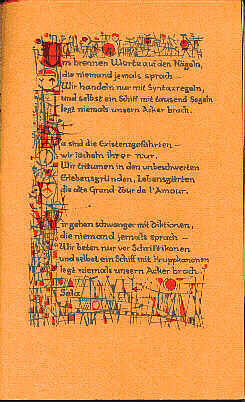 Uns brennen Worte auf den Nägeln,
die niemand jemals sprach –
Wir handeln nur mit Syntaxregeln,
und selbst ein Schiff mit tausend Segeln
legt niemals unsern Acker brach.
Da sind die Existenzgefährten –
wir lächeln ihrer nur.
Wir träumen in den unbeschwerten
Erlebensgründen, Lebensgärten
die alte Grand Tour de l'Amour.
Wir gehen schwanger mit Diktionen,
die niemand jemals sprach –
Wir beten nur vor Schriftikonen
und selbst ein Schiff mit Kruppkanonen
legt niemals unsern Acker brach.
Sela